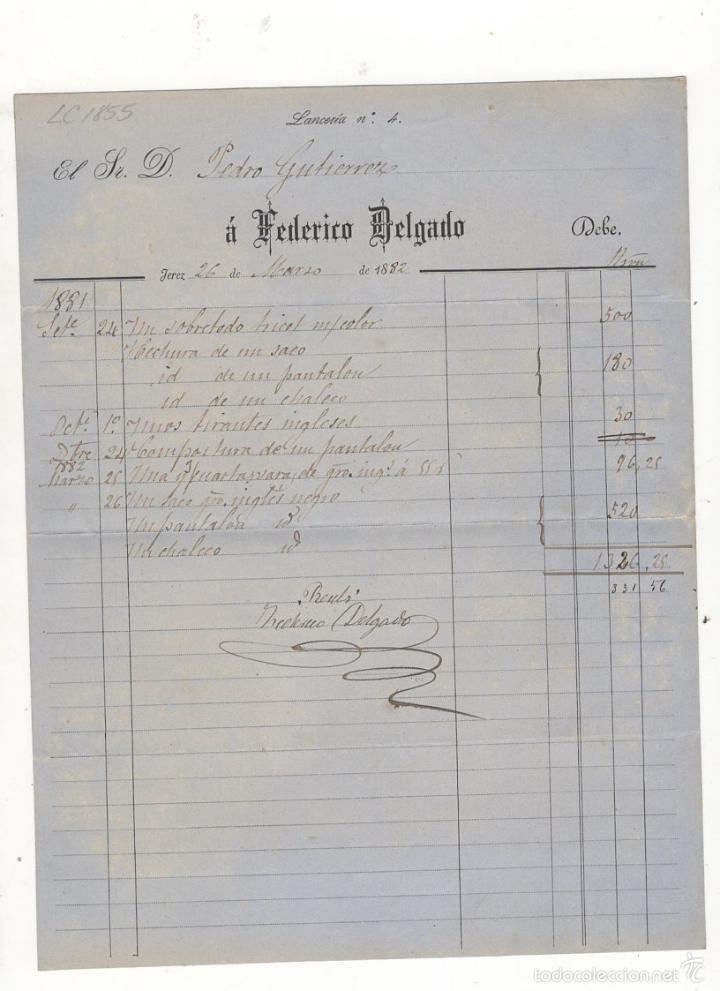 LC1855
Lancería nº. 4.
El Sr. D. Pedro Gutierrez
á Federico Delgado Debe.
Jerez 26 de Marzo de 1882 Rvn
1881
Sete. 24 Un sobretodo tricot m/color 500
Hechura de un saco
id de un pantalon 180
id de un chaleco
Octe. 1º Unos tirantes ingleses 30
Dbre 24 Compostura de un pantalon 10
1882
Marzo 25 Una y 3 cuartas vara, de gro. ings. á 55 r 96,25
" 26 Un saco gro. inglés negro
Un pantalon id 520
Un chaleco id
1326,25
331 56
Recibí
Federico Delgado
todocoleccion.net